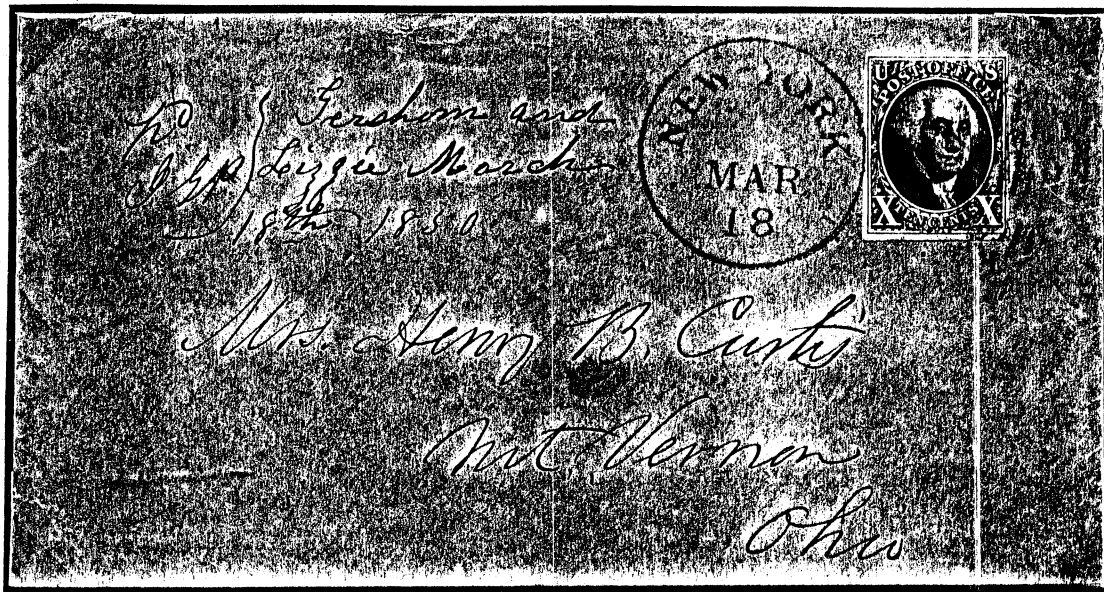 Gershom and
Lizzie March
18th 1850
NEW YORK
MAR
18
POST OFFICE
X TEN CENTS X
Mrs. Henry B. Curtis
Mt. Vernon
Ohio